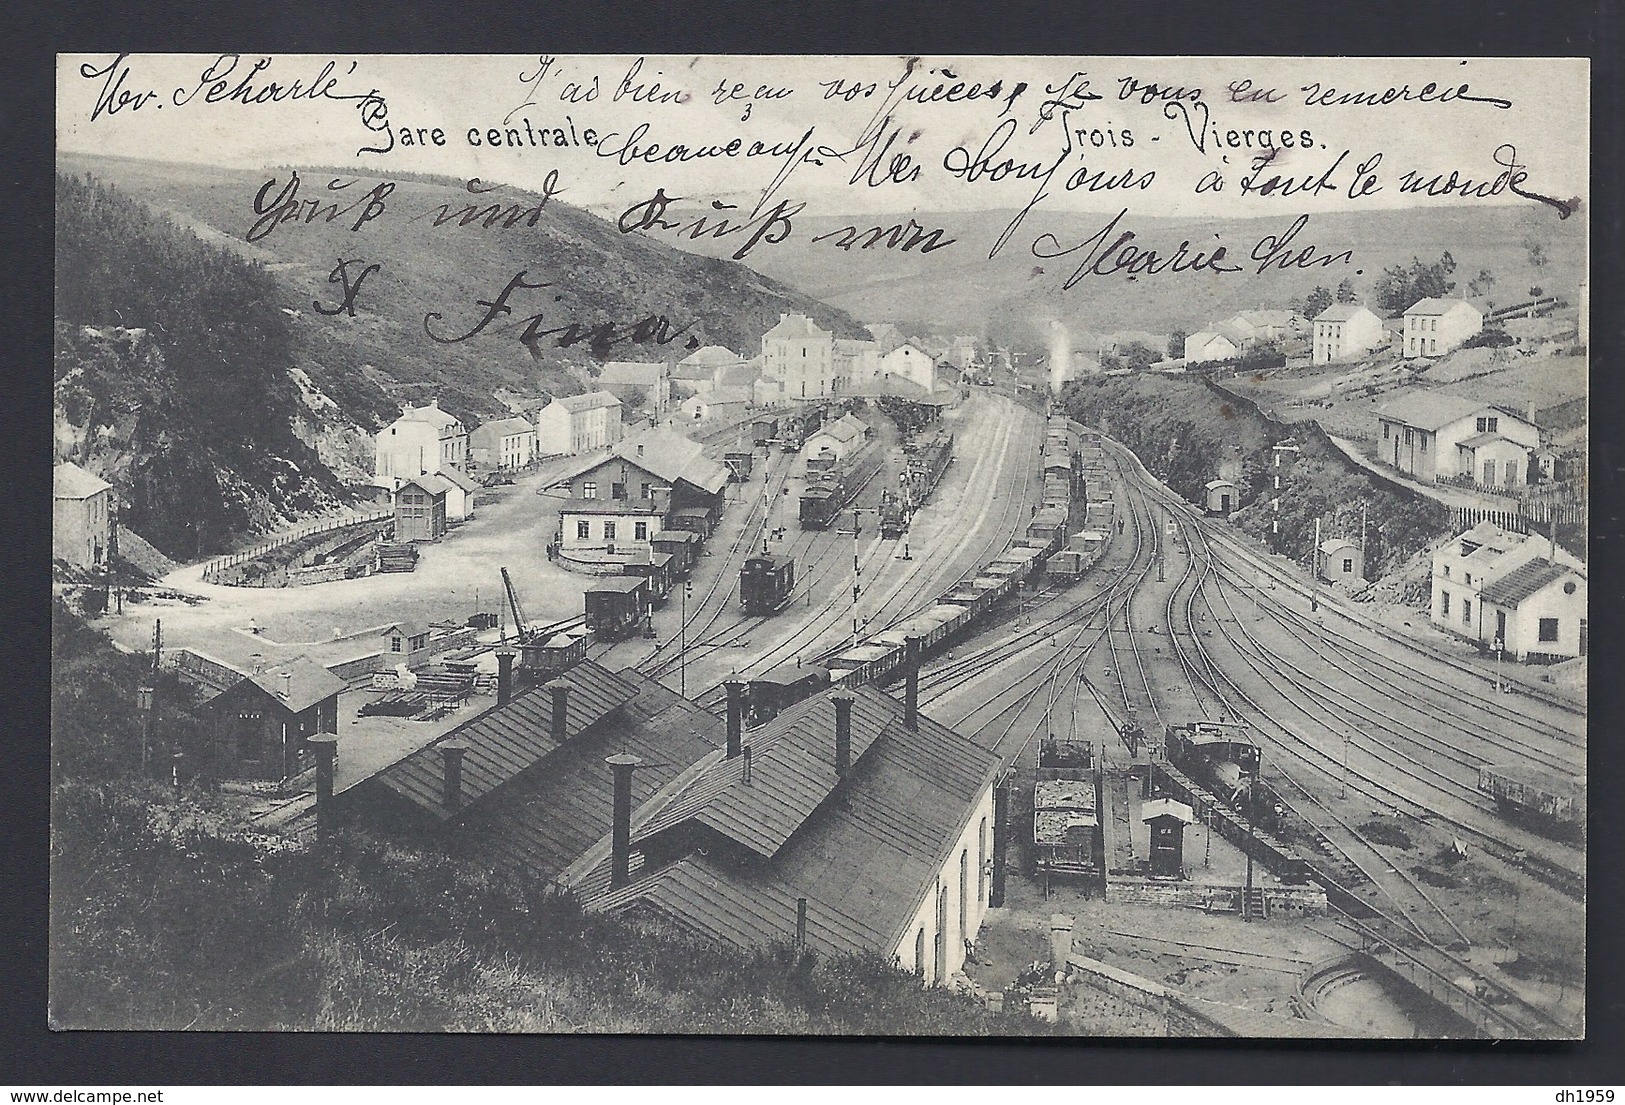 Mr. Scharlé J'ai bien reçu vos pièces, je vous en remercie
Gare centrale Trois-Vierges.
beaucoup. Mes bonjours à tout le monde
Gruß und Kuß von Mariechen.
X Fina.
delcampe.net
dh1959